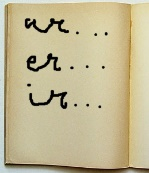 ar...
er...
ir...